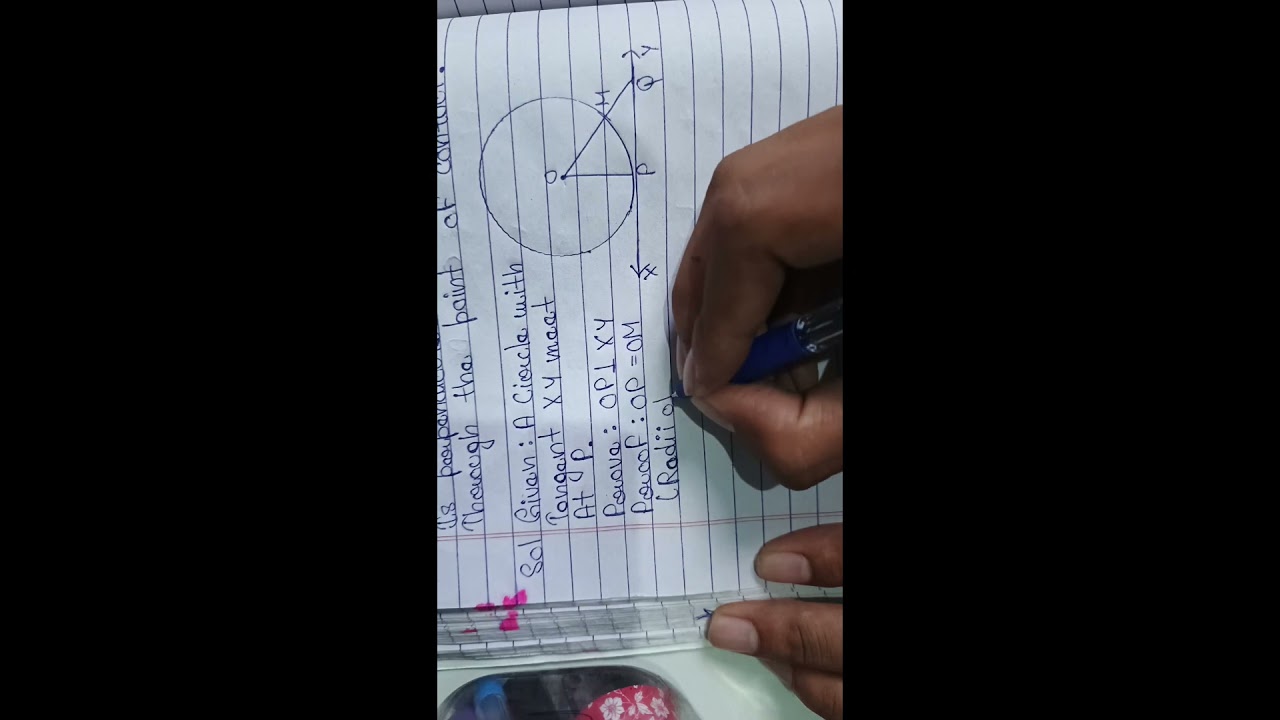 Is
Thorough the point of contact.
Sol Given : A Circle with
Tangent XY meet
At P.
Prove : OP ⊥ XY
Proof : OP = OM
(Radii o
O
M
P
Q
X
Y